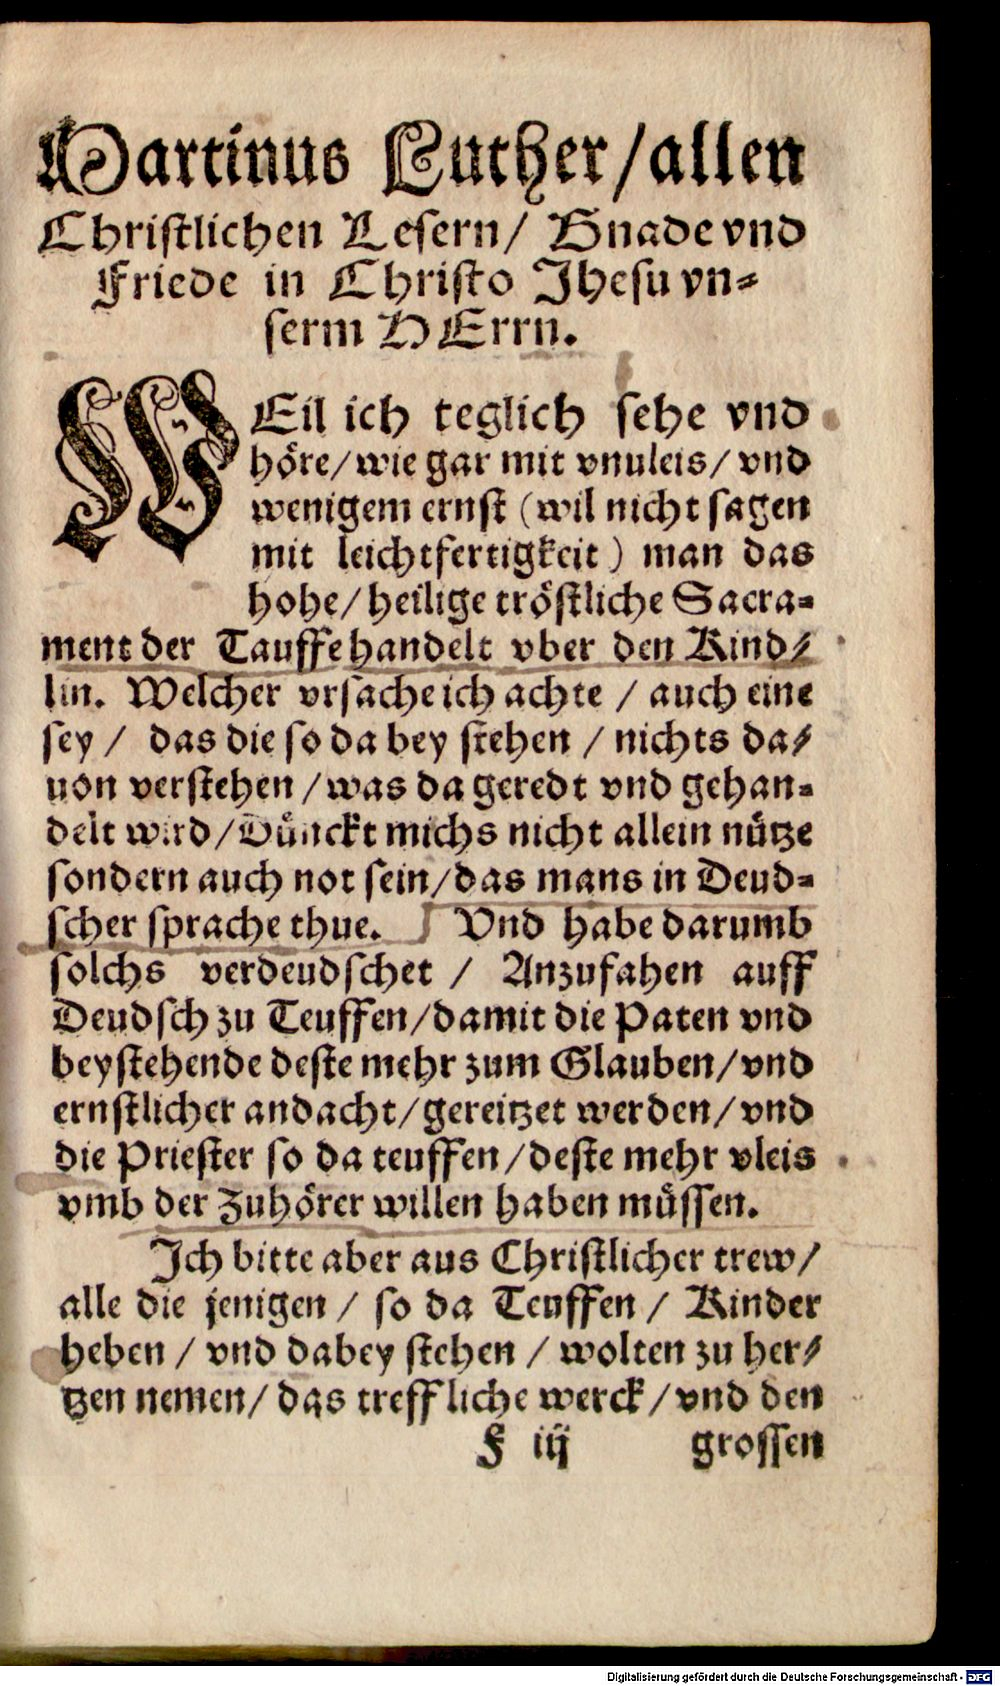 Martinus Luther/allen
Christlichen Lesern/ Gnade vnd
Friede in Christo Jhesu vn⸗
serm HErrn.
WEil ich teglich sehe vnd
höre/wie gar mit vnuleis/vnd
wenigem ernst (wil nicht sagen
mit leichtfertigkeit) man das
hohe/heilige tröstliche Sacra⸗
ment der Tauffe handelt vber den Kind⸗
lin. Welcher vrsache ich achte / auch eine
sey / das die so da bey stehen / nichts da⸗
uon verstehen/was da geredt vnd gehan⸗
delt wird/Dünckt michs nicht allein nütze
sondern auch not sein/das mans in Deud⸗
scher sprache thue. Vnd habe darumb
solchs verdeudschet / Anzufahen auff
Deudsch zu Teuffen/damit die Paten vnd
beystehende deste mehr zum Glauben/vnd
ernstlicher andacht/gereitzet werden/vnd
die Priester so da teuffen/deste mehr vleis
vmb der Zuhörer willen haben müssen.
Ich bitte aber aus Christlicher trew/
alle die jenigen / so da Teuffen / Kinder
heben / vnd dabey stehen / wolten zu her⸗
tzen nemen/das treffliche werck/vnd den
F iij grossen
Digitalisierung gefördert durch die Deutsche Forschungsgemeinschaft - DFG